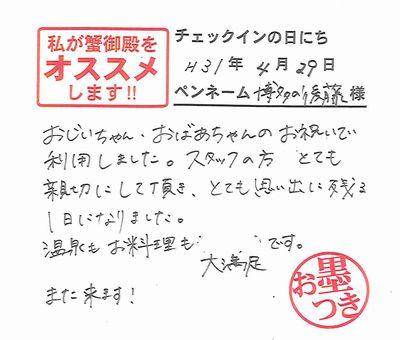 私が蟹御殿を
オススメ
します!!
チェックインの日にち
H31年 4月29日
ペンネーム 博多の後藤 様
おじいちゃん・おばあちゃんのお祝いで
利用しました。スタッフの方 とても
親切にして頂き、とても思い出に残る
1日になりました。
温泉もお料理も 大満足 です。
また来ます!
お墨つき